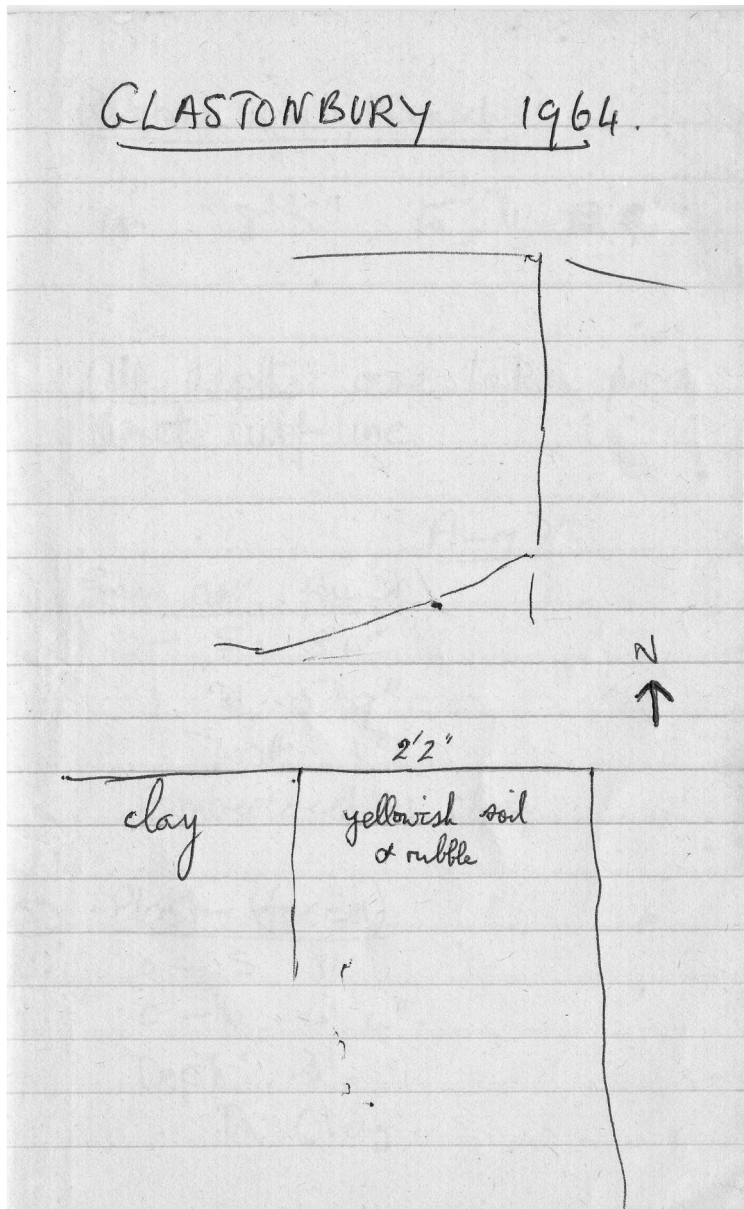 GLASTONBURY 1964.
N
2'2"
clay
yellowish soil
& rubble